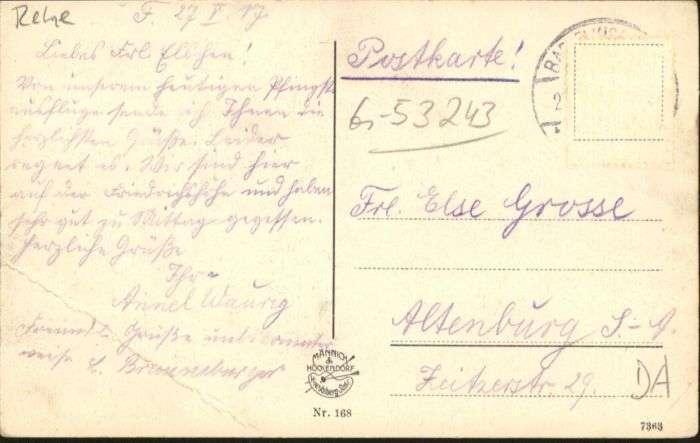 Relye
F. 27 V 17
Liebes Frl. Elschen!
Von unserem heutigen Pfingst
ausfluge sende ich Ihnen die
herzlichsten Grüße. Leider
regnet es. Wir sind hier
auf der Friedrichshöhe und haben
sehr gut zu Mittag gegessen.
Herzliche Grüße
Ihr
Annel
Freundl. Grüße unbekannter
weise
Postkarte!
6,-53243
Frl. Else Grosse
Altenburg S.-A.
Zeitzerstr. 29.
DA
MÄNNICH
&
HÖCKENDORF
Nr. 168
7363